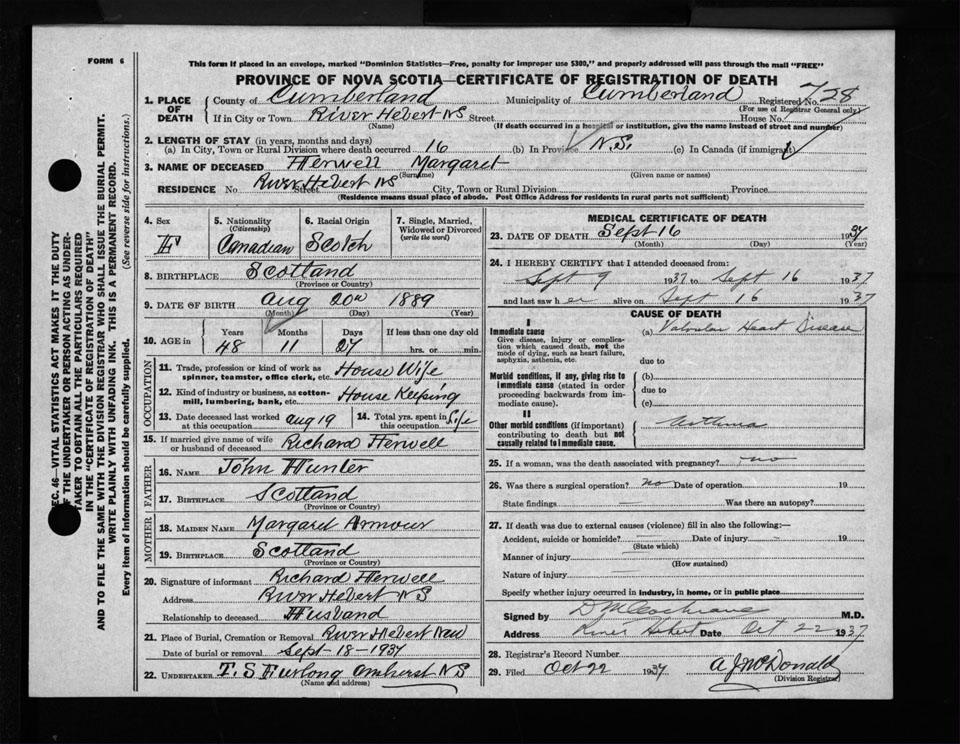 FORM 6
This form if placed in an envelope, marked "Dominion Statistics—Free, penalty for improper use $300," and properly addressed will pass through the mail "FREE"
PROVINCE OF NOVA SCOTIA—CERTIFICATE OF REGISTRATION OF DEATH
1. PLACE OF DEATH
County of Cumberland Municipality of Cumberland Registered No. 728
(For use of Registrar General only)
If in City or Town River Hebert NS Street House No.
(Name) (If death occurred in a hospital or institution, give the name instead of street and number)
2. LENGTH OF STAY (in years, months and days)
(a) In City, Town or Rural Division where death occurred 16 (b) In Province N.S. (c) In Canada (if immigrant)
3. NAME OF DECEASED Herwell Margaret
(Surname) (Given name or names)
RESIDENCE No River Hebert NS Street City, Town or Rural Division Province
(Residence means usual place of abode. Post Office Address for residents in rural parts not sufficient)
4. Sex F
5. Nationality (Citizenship) Canadian
6. Racial Origin Scotch
7. Single, Married, Widowed or Divorced (write the word)
8. BIRTHPLACE Scotland
(Province or Country)
9. DATE OF BIRTH Aug 20th 1889
(Month) (Day) (Year)
10. AGE in Years Months Days If less than one day old
48 11 27 hrs. or min.
OCCUPATION
11. Trade, profession or kind of work as spinner, teamster, office clerk, etc. House Wife
12. Kind of industry or business, as cotton-mill, lumbering, bank, etc. House Keeping
13. Date deceased last worked at this occupation aug 19
14. Total yrs. spent in this occupation Life
15. If married give name of wife or husband of deceased Richard Herwell
FATHER
16. NAME John Hunter
17. BIRTHPLACE Scotland
(Province or Country)
MOTHER
18. MAIDEN NAME Margaret Armour
19. BIRTHPLACE Scotland
(Province or Country)
20. Signature of informant Richard Herwell
Address River Hebert NS
Relationship to deceased Husband
21. Place of Burial, Cremation or Removal River Hebert
Date of burial or removal Sept-18-1937
22. UNDERTAKER T. S Furlong Amherst NS
(Name and address)
MEDICAL CERTIFICATE OF DEATH
23. DATE OF DEATH Sept 16 1937
(Month) (Day) (Year)
24. I HEREBY CERTIFY that I attended deceased from:
Sept 9 1937 to Sept 16 1937
and last saw her alive on Sept 16 1937
CAUSE OF DEATH
I
Immediate cause
Give disease, injury or complication which caused death, not the mode of dying, such as heart failure, asphyxia, asthenia, etc.
(a) Valvular Heart Disease
due to
Morbid conditions, if any, giving rise to immediate cause (stated in order proceeding backwards from immediate cause).
(b)
due to
(c)
II
Other morbid conditions (if important) contributing to death but not causally related to immediate cause.
Asthma
25. If a woman, was the death associated with pregnancy? no
26. Was there a surgical operation? no Date of operation 19
State findings Was there an autopsy?
27. If death was due to external causes (violence) fill in also the following:—
Accident, suicide or homicide? Date of injury 19
(State which)
Manner of injury
(How sustained)
Nature of injury
Specify whether injury occurred in industry, in home, or in public place
Signed by D M Cochrane M.D.
Address River Hebert Date Oct 22 1937
28. Registrar's Record Number
29. Filed Oct 22 1937 A J McDonald
(Division Registrar)
SEC. 46—VITAL STATISTICS ACT MAKES IT THE DUTY
OF THE UNDERTAKER OR PERSON ACTING AS UNDER-
TAKER TO OBTAIN ALL THE PARTICULARS REQUIRED
IN THE "CERTIFICATE OF REGISTRATION OF DEATH"
AND TO FILE THE SAME WITH THE DIVISION REGISTRAR WHO SHALL ISSUE THE BURIAL PERMIT.
WRITE PLAINLY WITH UNFADING INK. THIS IS A PERMANENT RECORD.
Every item of information should be carefully supplied. (See reverse side for instructions.)